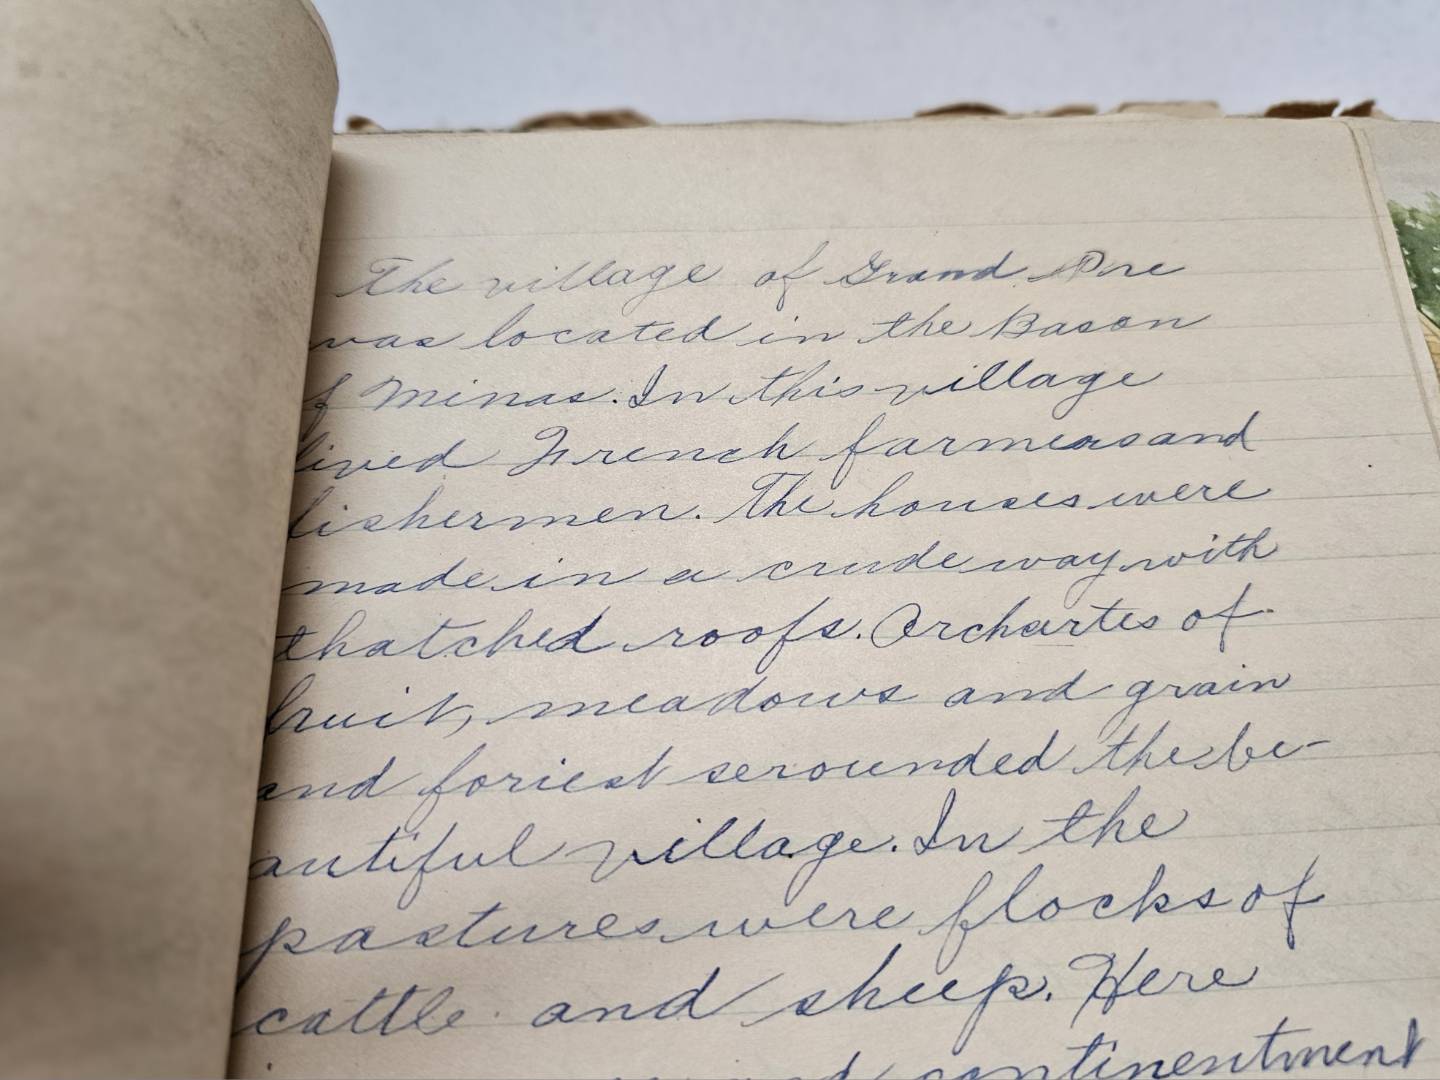 The village of Grand Pre
was located in the Bason
of Minas. In this village
lived French farmers and
fishermen. The houses were
made in a crude way with
thatched roofs. Orchartes of
fruit, meadows and grain
and foriest serounded the be-
autiful village. In the
pastures were flocks of
cattle and sheep. Here
continentment